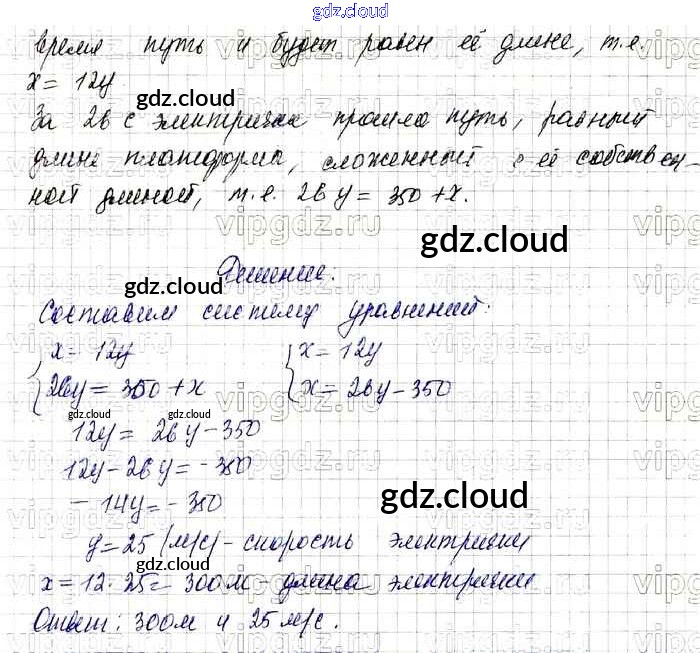 gdz.cloud
время путь и будет равен её длине, т.е.
x = 12y
gdz.cloud
За 26 с электричка прошла путь, равный
длине платформы, сложенный с её собствен-
ной длиной, т.е. 26y = 350 + x.
gdz.cloud
Решение:
gdz.cloud
Составим систему уравнений:
x = 12y x = 12y
26y = 350 + x x = 26y - 350
gdz.cloud gdz.cloud
12y = 26y - 350
12y - 26y = - 350
- 14y = - 350
gdz.cloud
y = 25 (м/с) - скорость электрички
gdz.cloud
x = 12·25 = 300м - длина электрички
Ответ: 300м и 25 м/с.
gdz.cloud